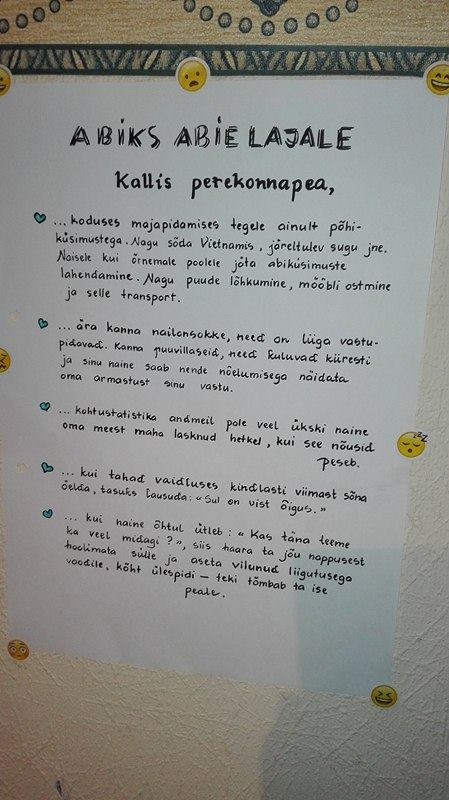 ABIKS ABIELAJALE
Kallis perekonnapea,
... koduses majapidamises tegele ainult põhi-
küsimustega. Nagu sõda Vietnamis, järeltulev sugu jne.
Naisele kui õrnemale poolele jäta abiküsimuste
lahendamine. Nagu puude lõhkumine, mööbli ostmine
ja selle transport.
... ära kanna nailonsokke, need on liiga vastu-
pidavad. Kanna puuvillaseid, need kuluvad kiiresti
ja sinu naine saab nende nõelumisega näidata
oma armastust sinu vastu.
... kohtustatistika andmeil pole veel ükski naine
oma meest maha lasknud hetkel, kui see nõusid
peseb.
... kui tahad vaidluses kindlasti viimast sõna
öelda, tasuks lausuda: "Sul on vist õigus."
... kui naine õhtul ütleb: "Kas täna teeme
ka veel midagi?", siis haara ta jõu nappusest
hoolimata sülle ja aseta vilunud liigutusega
voodile, kõht ülespidi - teki tõmbab ta ise
peale.
zzz